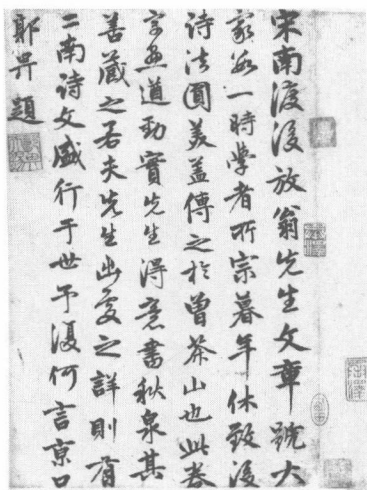 宋南渡后放翁先生文章號大
家為一時學者所宗暮年休致後
詩法圓美蓋傳之於曾茶山也此卷
字畫遒勁實先生得意書秋泉其
善藏之若夫先生出處之詳則有
二南詩文盛行于世予復何言京口
郭畀題